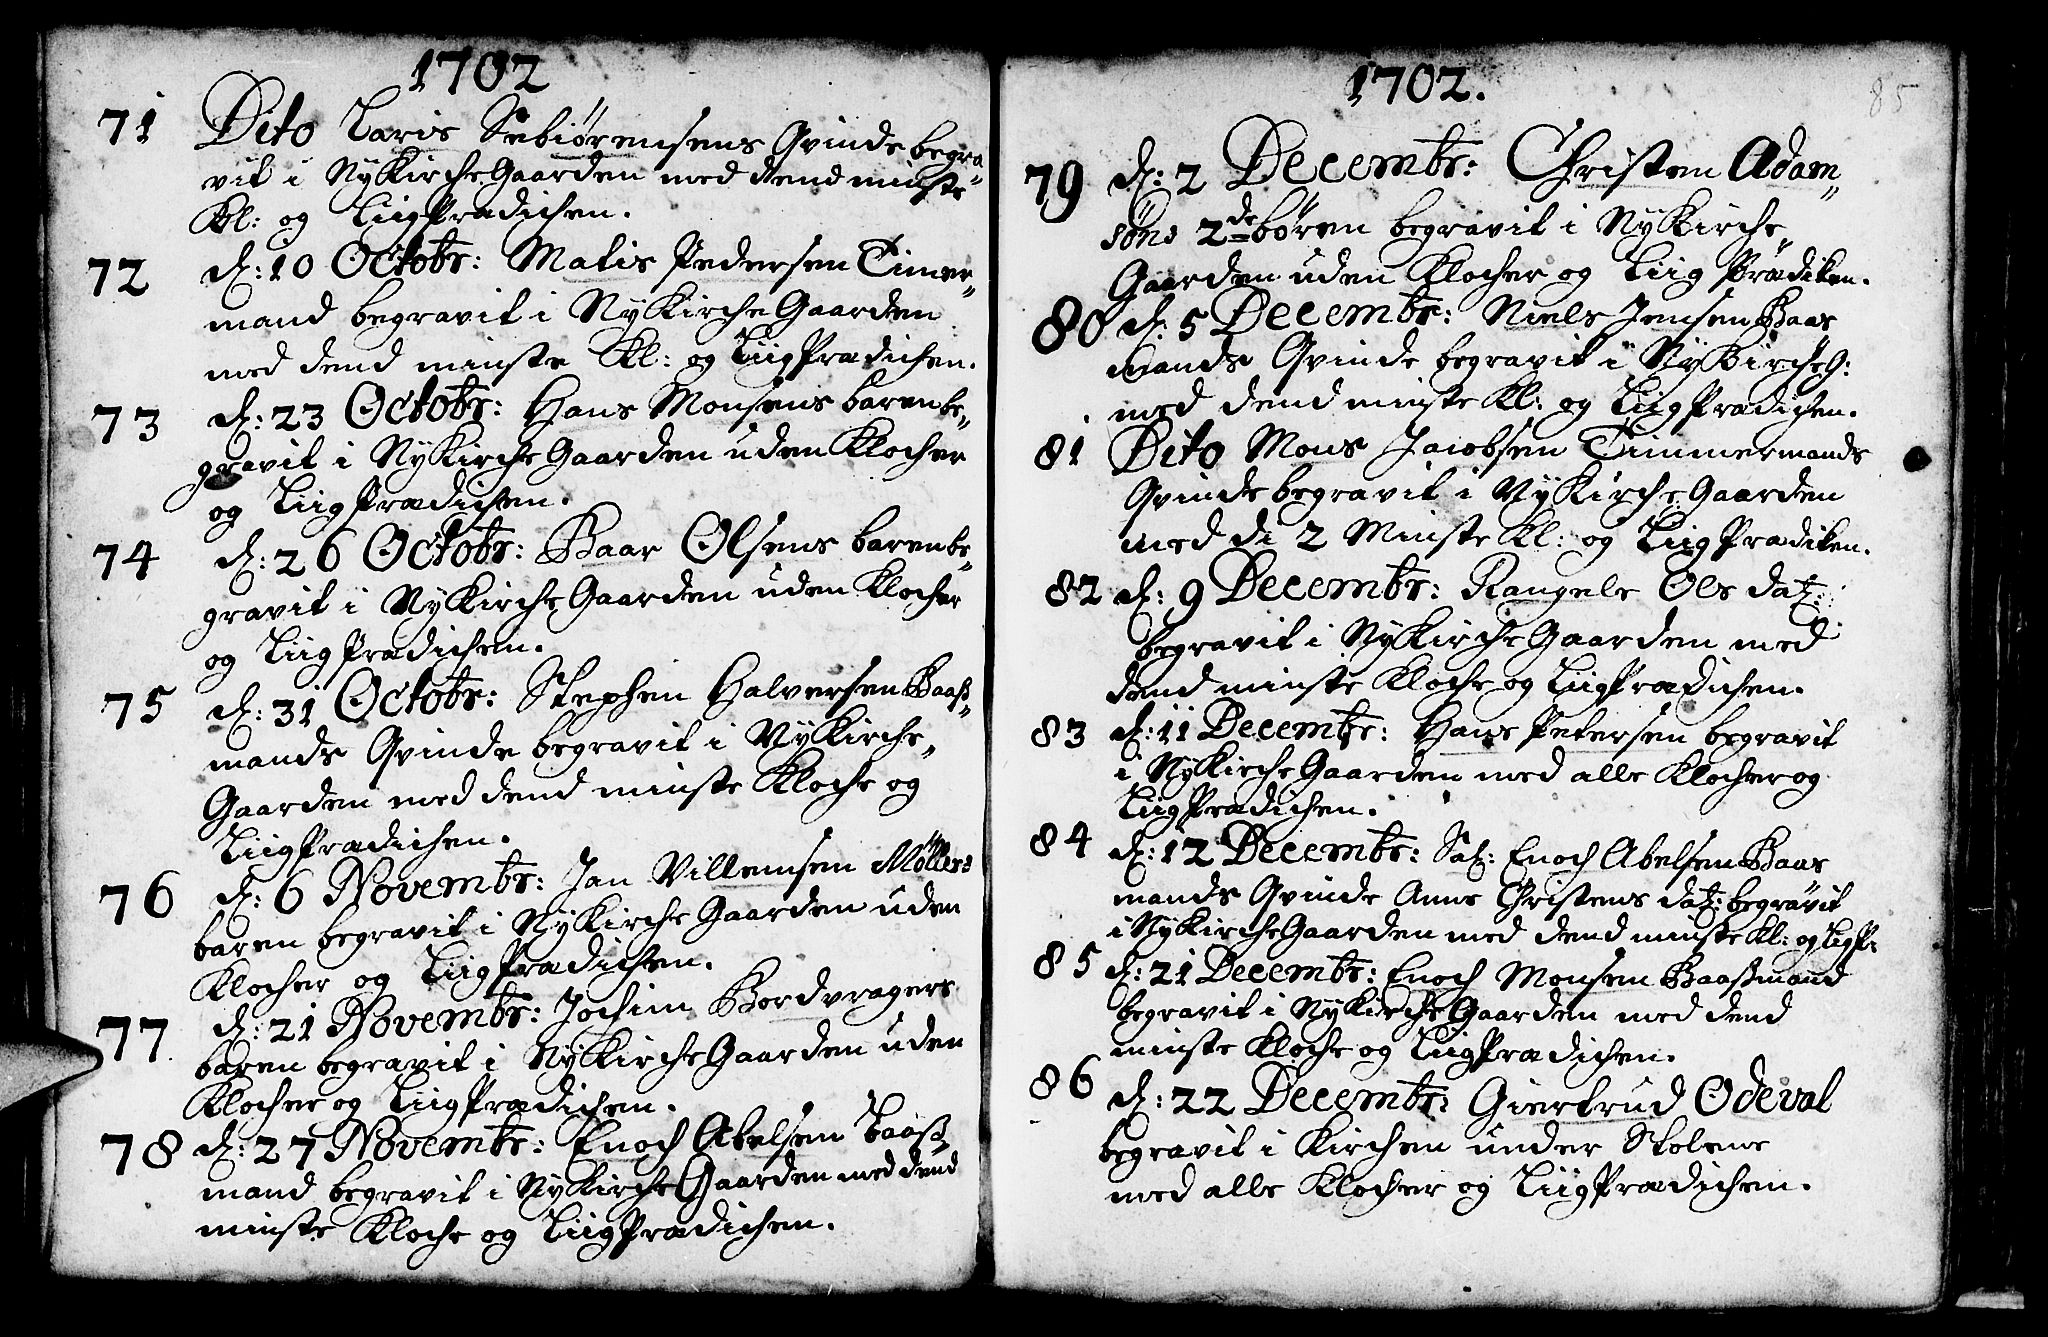 1702
71 Dito Laris Sebiørensens Qvinde begra„
vit i NyKircheGaarden med dend minste
Kl: og LiigPrædichen.
72 d: 10 Octobr: Matis Pedersen Timer„
mand begravit i NyKircheGaarden
med dend minste Kl: og LiigPrædichen.
73 d: 23 Octobr: Hans Monsens baren be„
gravit i NyKircheGaarden uden Klocher
og LiigPrædichen.
74 d: 26 Octobr: Baar Olsens baren be„
gravit i NyKircheGaarden uden Klocher
og LiigPrædichen.
75 d: 31 Octobr: Stephen Halversen Baaß„
mands Qvinde begravit i NyKirche„
Gaarden med dend minste Kloche og
LiigPrædichen.
76 d: 6 Novembr: Jan Villemsen Møllers
baren begravit i NyKircheGaarden uden
Klocher og LiigPrædichen.
77 d: 21 Novembr: Jochim Bordvragers
baren begravit i NyKircheGaarden uden
Klocher og LiigPrædichen.
78 d: 27 Novembr: Enoch Abelsen Baaß„
mand begravit i NyKircheGaarden med dend
minste Kloche og LiigPrædichen.
1702.
85
79 d: 2 Decembr: Christen Adam„
søns 2de børen begravit i NyKirche„
Gaarden uden Klocher og Liig Prædiken.
80 d: 5 Decembr: Niels Jensen Baas
mands Qvinde begravit i NyKircheG:
med dend minste Kl: og LiigPrædichen.
81 Dito Mons Jacobsen Timmermands
Qvinde begravit i NyKircheGaarden
med di 2 Minste Kl: og LiigPrædiken.
82 d: 9 Decembr: Rangele Ols datz:
begravit i NyKircheGaarden med
dend minste Kloche og LiigPrædichen.
83 d: 11 Decembr: Hans Petersen begravit
i NyKircheGaarden med alle Klocher og
LiigPrædichen.
84 d: 12 Decembr: Sal: Enoch Abelsen Baas
mands Qvinde Anne Christens datz: begravit
i NyKircheGaarden med dend minste Kl: og LigP:
85 d: 21 Decembr: Enoch Monsen Baaßmand
begravit i NyKircheGaarden med dend
minste Kloche og LiigPrædichen.
86 d: 22 Decembr: Giertrud Odeval
begravit i Kirchen under Stolene
med alle Klocher og LiigPrædichen.